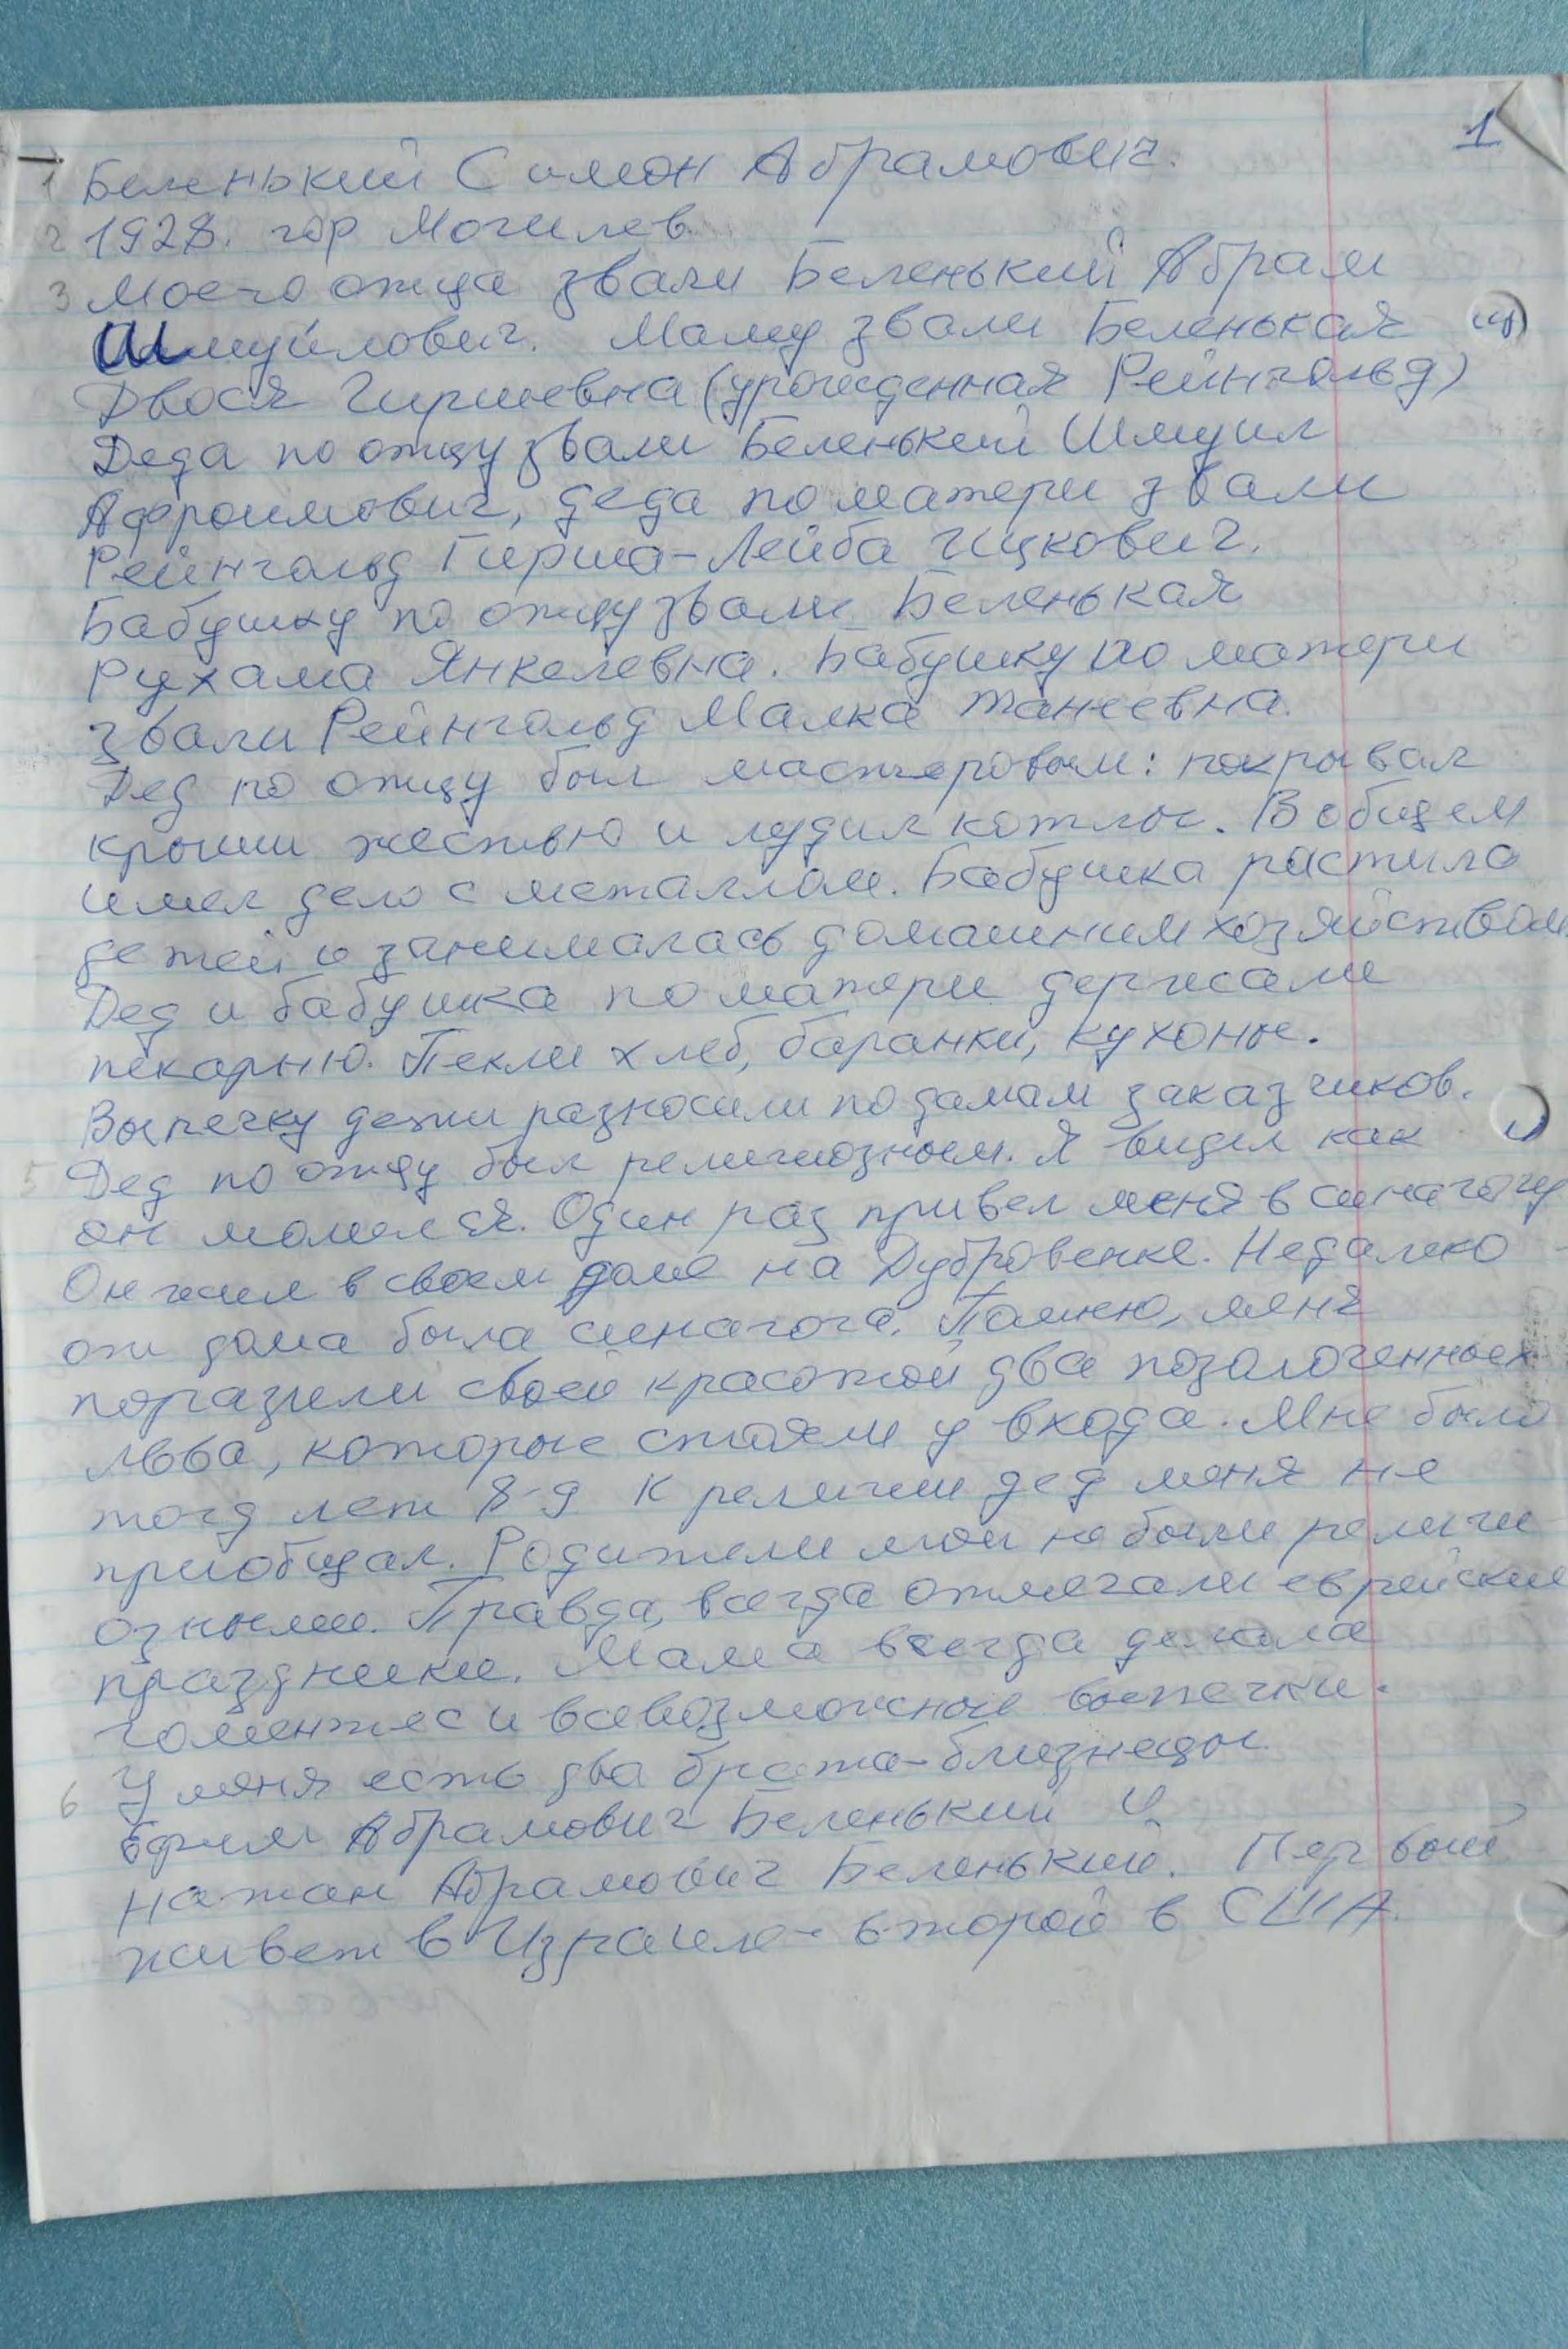 1
1 Беленький Симон Абрамович.
2 1928. гор Могилев
3 Моего отца звали Беленький Абрам
Шмуйлович. Маму звали Беленькая (4)
Двося Гиршевна (урожденная Рейнгольд)
Деда по отцу звали Беленький Шмуил
Афроимович, деда по матери звали
Рейнгольд Гирша-Лейба Ицкович.
Бабушку по отцу звали Беленькая
Рухама Янкелевна. Бабушку по матери
звали Рейнгольд Малка Танеевна.
Дед по отцу был мастеровым: покрывал
крыши жестью и лудил котлы. В общем
имел дело с металлом. Бабушка растила
детей и занималась домашним хозяйством
Дед и бабушка по матери держали
пекарню. Пекли хлеб, баранки, кухоны.
Выпечку дети разносили по домам заказчиков.
5 Дед по отцу был религиозным. Я видел как
он молился. Один раз привел меня в синагогу
Он жил в своем доме на Дубровенке. Недалеко
от дома была синагога. Помню, меня
поразили своей красотой два позолоченных
льва, которые стояли у входа. Мне было
тогд лет 8-9 К религии дед меня не
приобщал. Родители мои не были религи
озными. Правда, всегда отмечали еврейские
праздники. Мама всегда делала
гоменташ и всевозможные выпечки.
6 У меня есть два брата-близнецы
Ефим Абрамович Беленький и
Натан Абрамович Беленький. Первый
живет в Израиле второй в США.